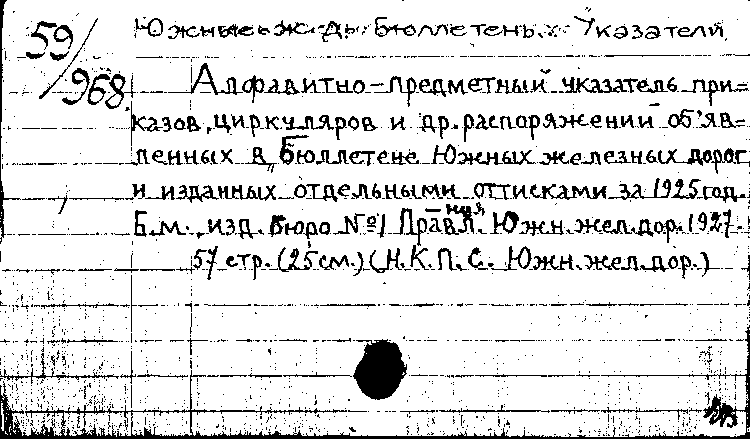 59/968
Южные ж.-д. Бюллетень. Указатели
Алфавитно-предметный указатель при=
казов, циркуляров и др. распоряжений об'яв-
ленных в „Бюллетене Южных железных дорог
и изданных отдельными оттисками за 1925 год.
Б.м., изд. Бюро №1 Правл.ния Южн. жел. дор. 1927.
57 стр. (25 см.) (Н.К.П.С. Южн. жел. дор.)